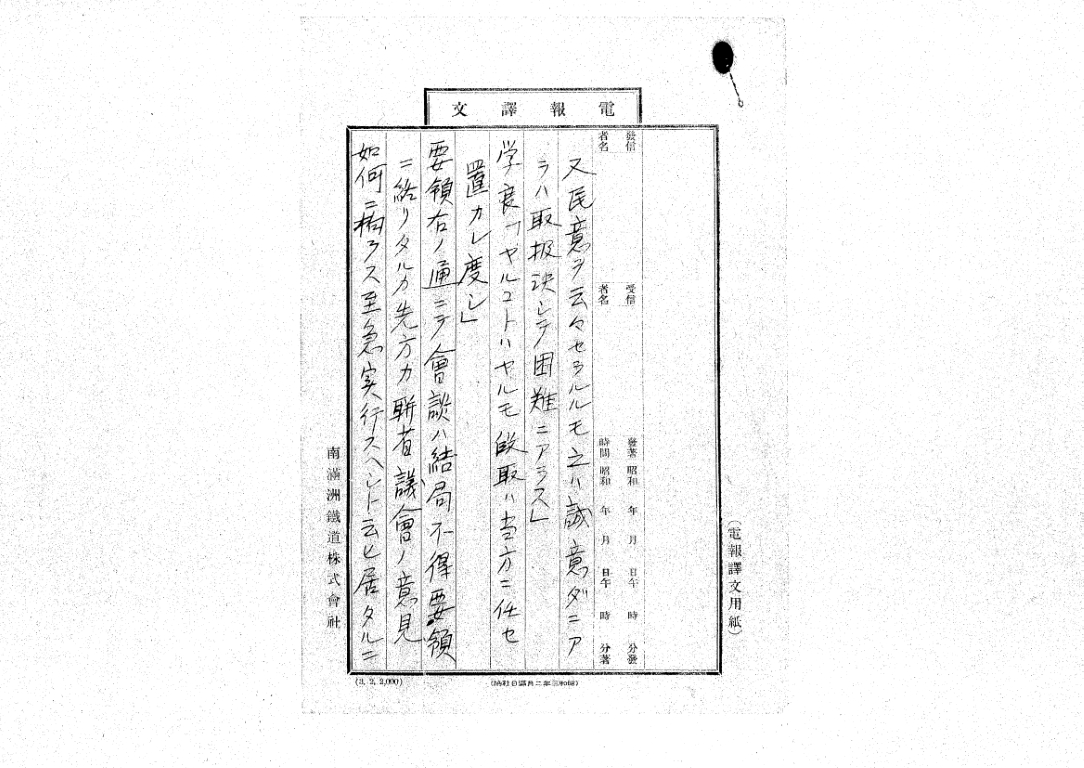 電報譯文
(電報譯文用紙)
發信者名
受信者名
發著時間 昭和 年 月 日午 時 分發
昭和 年 月 日午 時 分著
又民意ヲ云々セラルルモ之ハ誠意ダニア
ラハ取扱決シテ困難ニアラス」
学良「ヤルコトハヤルモ 取ハ当方ニ任セ
置カレ度シ」
要領右ノ通ニテ會談ハ結局不得要領
ニ終リタルカ先方カ聯省議會ノ意見
如何ニ拘ラス至急実行スヘシト云ヒ居タルニ
南滿洲鐵道株式會社
(3. 2. 2,000)